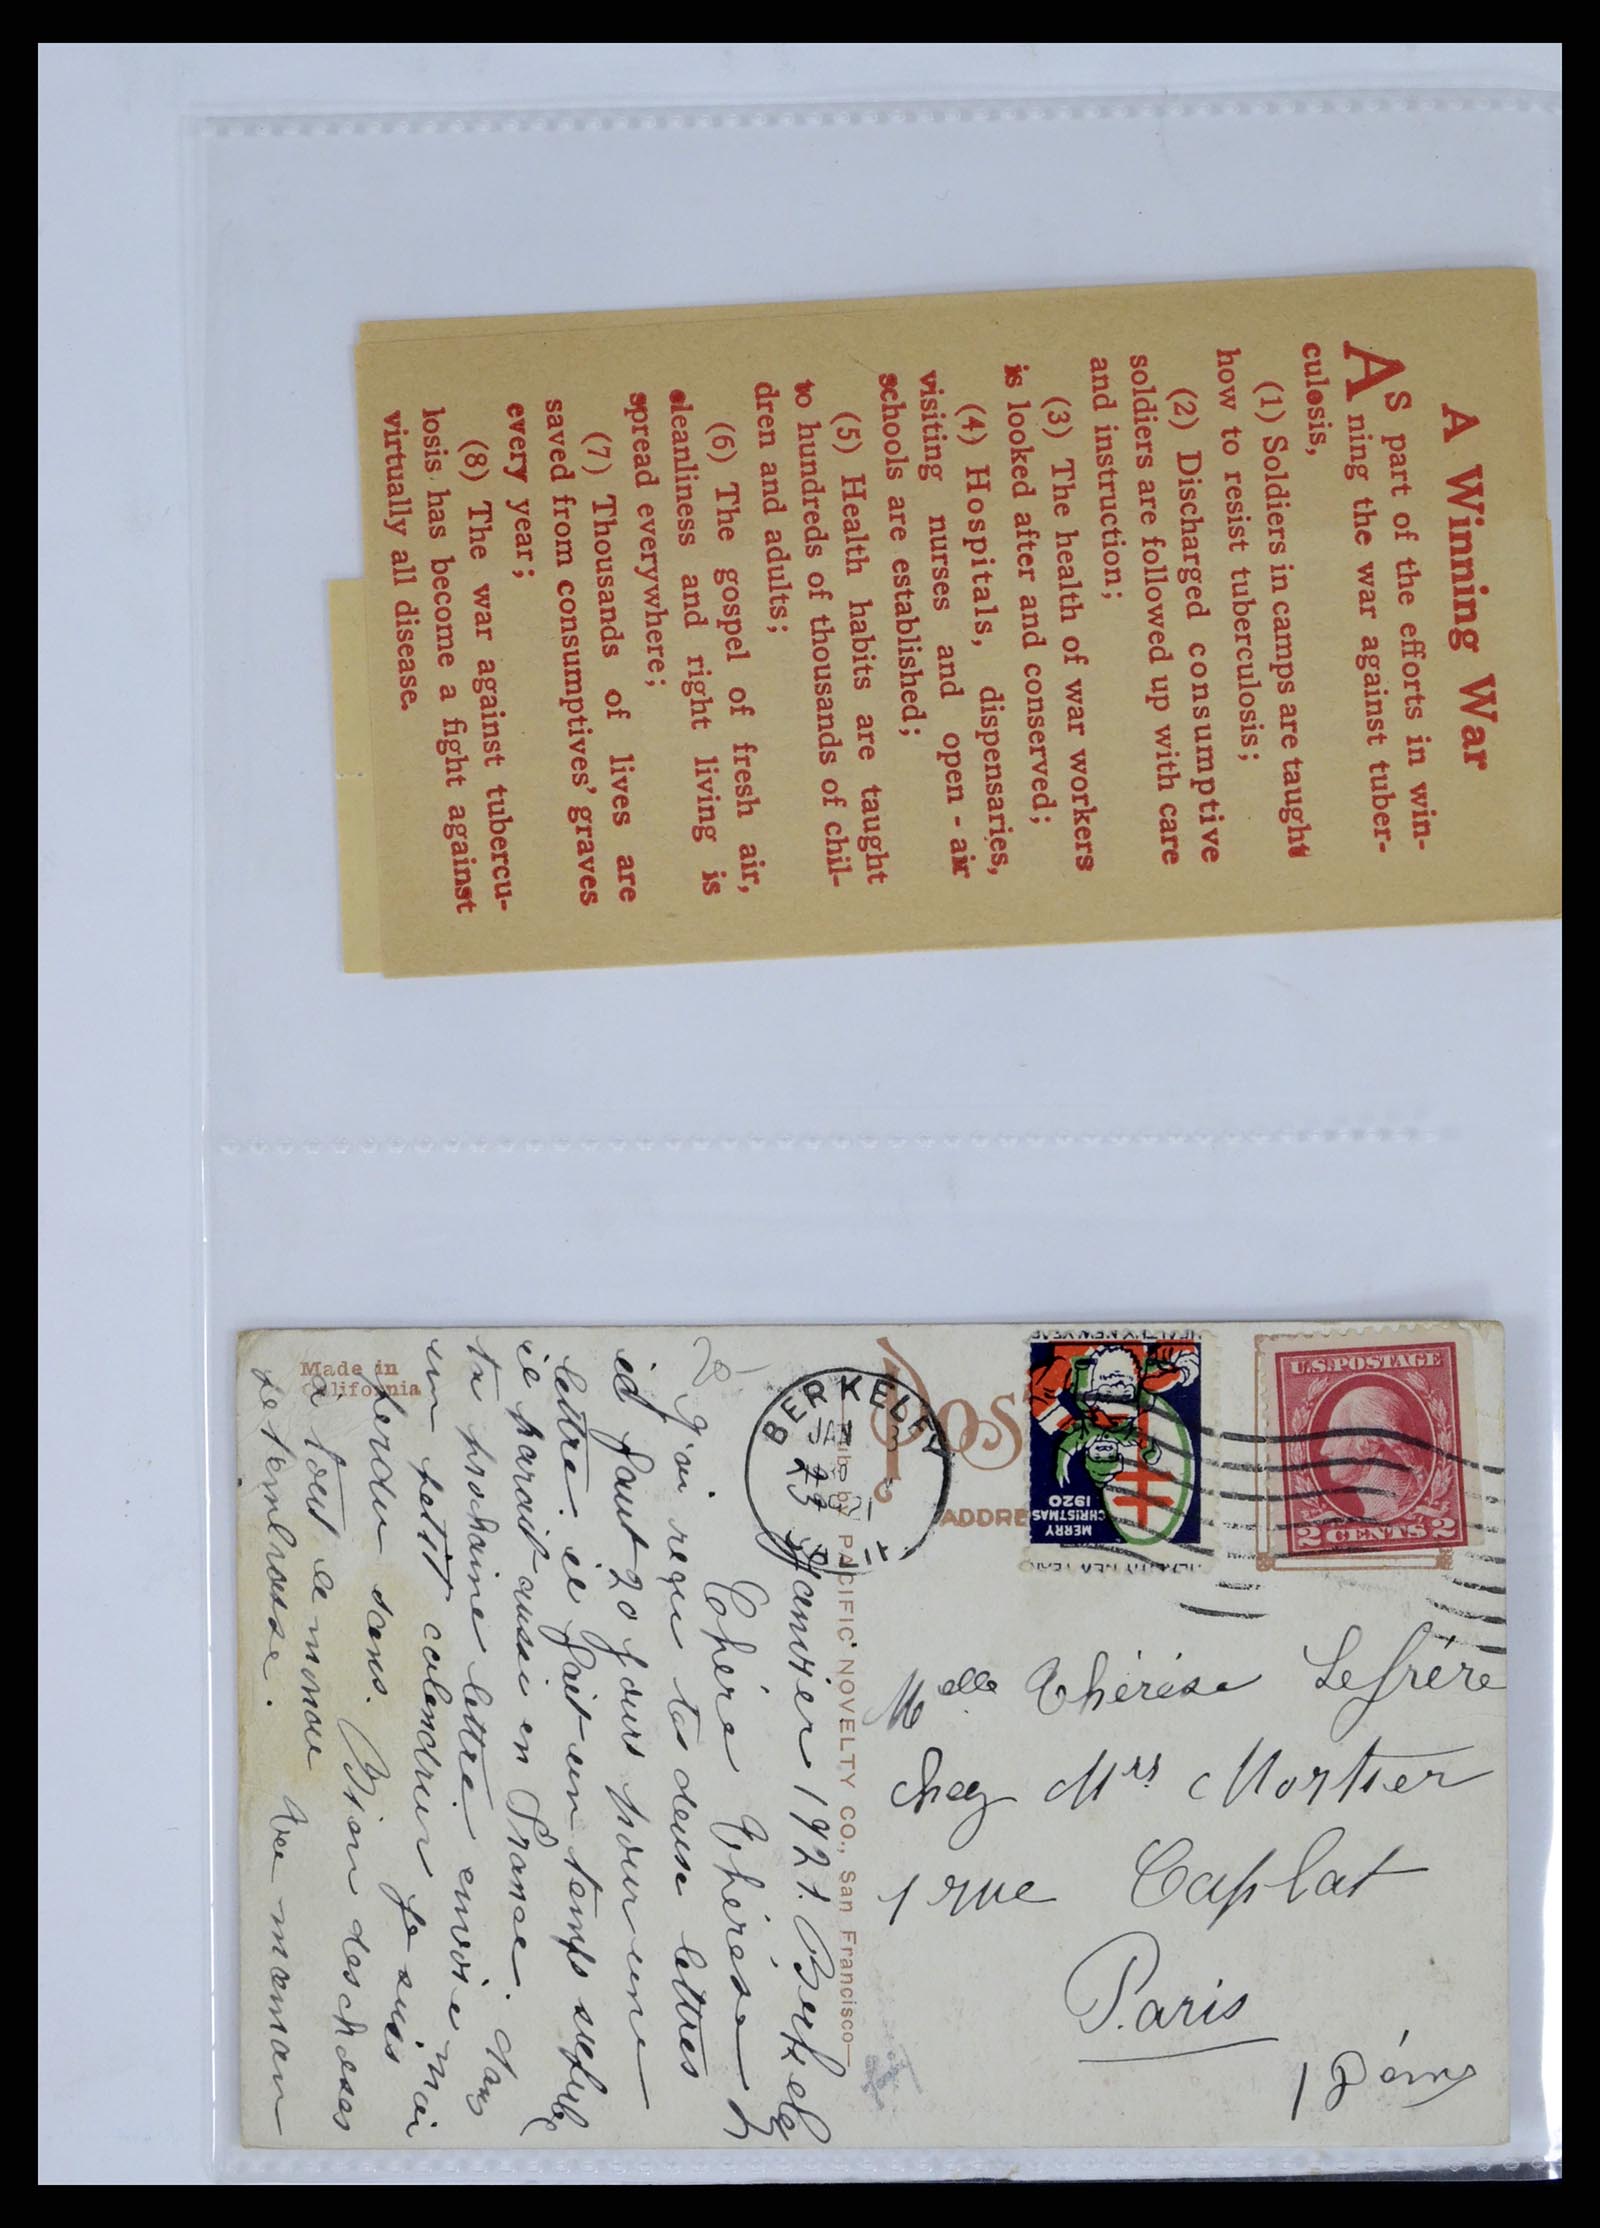 A Winning War
AS part of the efforts in win-
ning the war against tuber-
culosis,
(1) Soldiers in camps are taught
how to resist tuberculosis;
(2) Discharged consumptive
soldiers are followed up with care
and instruction;
(3) The health of war workers
is looked after and conserved;
(4) Hospitals, dispensaries,
visiting nurses and open-air
schools are established;
(5) Health habits are taught
to hundreds of thousands of chil-
dren and adults;
(6) The gospel of fresh air,
cleanliness and right living is
spread everywhere;
(7) Thousands of lives are
saved from consumptives' graves
every year;
(8) The war against tubercu-
losis has become a fight against
virtually all disease.
U.S. POSTAGE
2 CENTS 2
HEALTHY NEW YEAR
MERRY
CHRISTMAS
1920
POS
ADDRE
BERKELEY
JAN
23
1921
Pub. by PACIFIC NOVELTY CO., San Francisco
Made in
California
Melle Thérèse Lefrère
Chez Mrs Mortier
1 rue Caplat
Paris
18ème
23 Janvier 1921. Berkeley
Chère Thérèse
J'ai reçu tes deux lettres
il faut 20 jours pour une
lettre. il fait un temps superbe
il parait aussi en France. dans
ta prochaine lettre envoie moi
un petit calendrier je suis
perdu sans. Bien des choses
à tout le monde
ta maman
te t'embrasse.